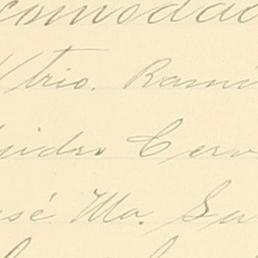 comodad
Vtrio. Rami
sidro Cerv
osé Ma. Sa